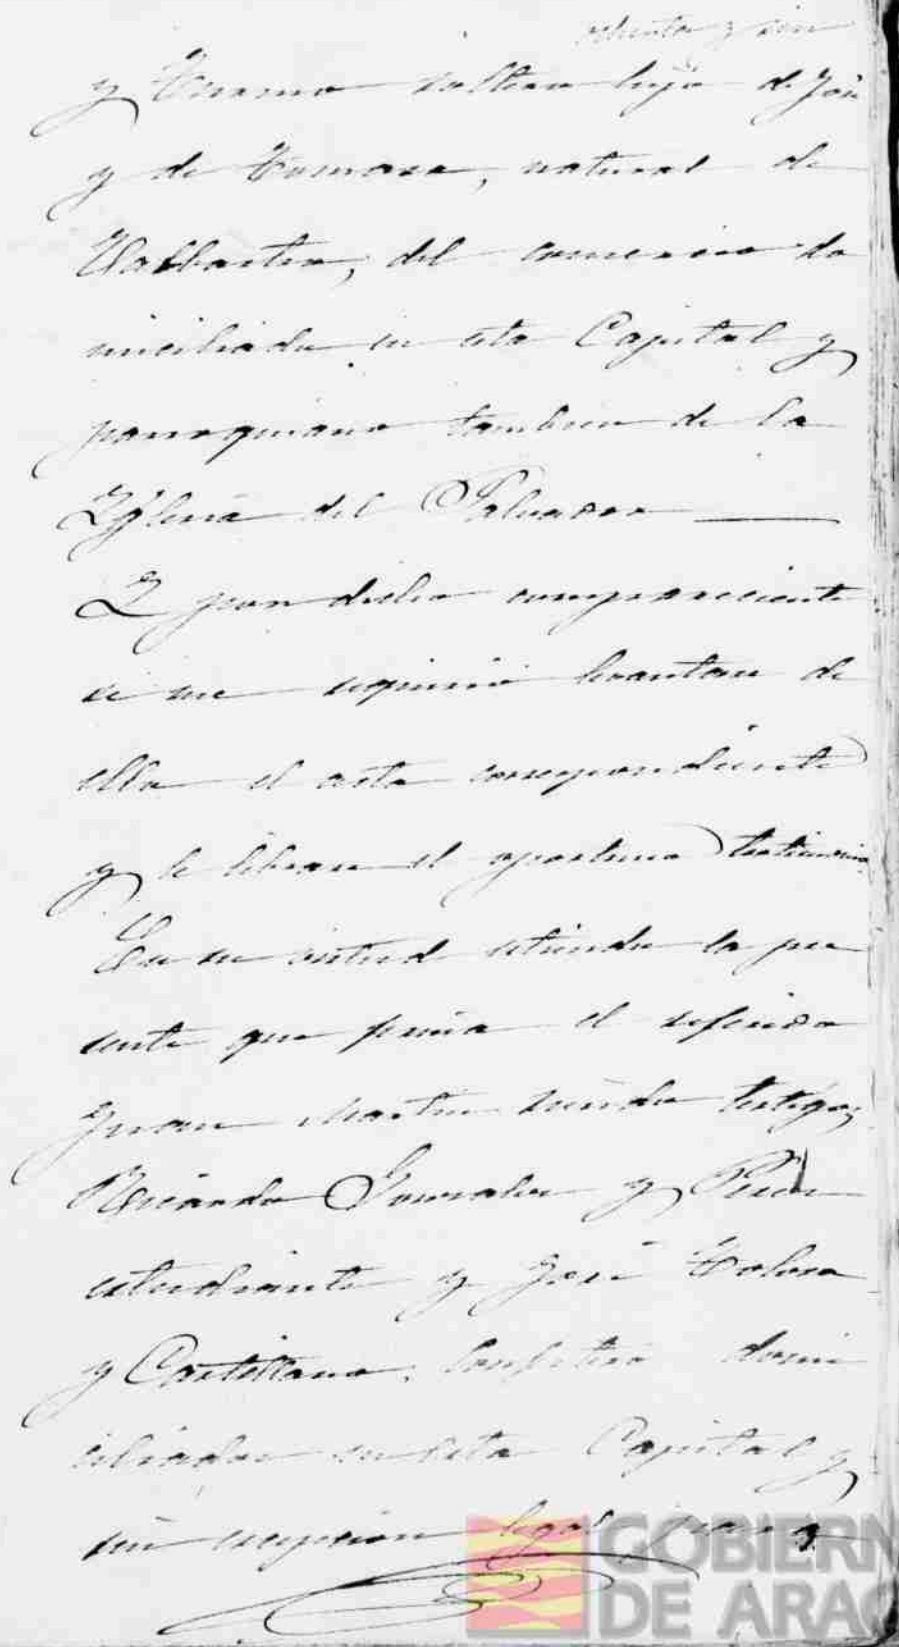 ochenta y cinco
y Tierno soltero hijo de José
y de Tomasa, natural de
Balbastro, del comercio do
miciliado en esta Capital y
parroquiano tambien de la
Yglesia del Salvador
Y por dicho compareciente
se me requirió levantase de
ello el acta correspondiente
y le librase el oportuno testimonio
En su virtud estiendo la pre
sente que firma el referido
Juan Martin siendo testigos
Ricardo Gonzalez y
estudiante y José Tolosa
y Castellano, Confitero domi
ciliados en esta Capital y
sin excepcion legal para
GOBIERN
DE ARAG